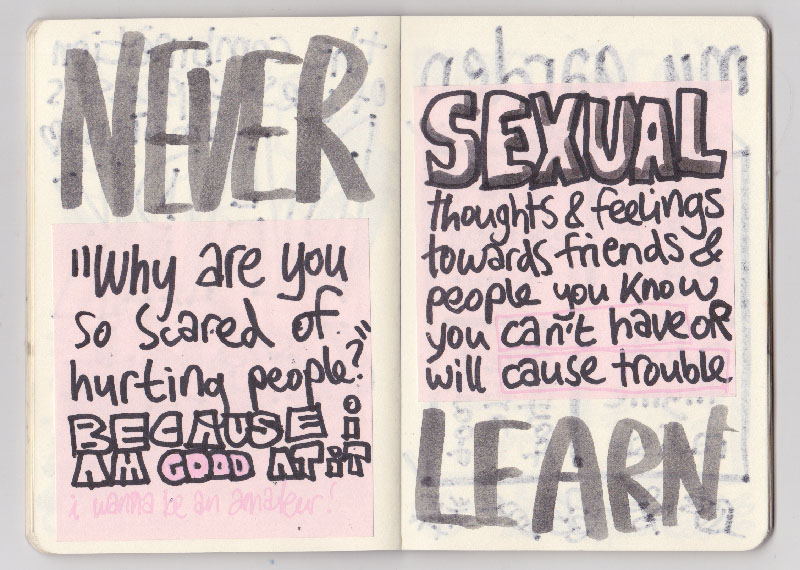 NEVER
"Why are you
so scared of
hurting people?"
BECAUSE i
AM GOOD AT iT
i wanna be an amateur!
my garden
SEXUAL
thoughts & feelings
towards friends &
people you know
you can't have OR
will cause trouble.
LEARN